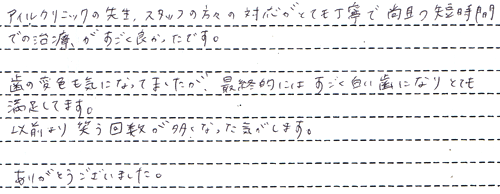 アイルクリニックの先生、スタッフの方々の対応がとても丁寧で尚且つ短時間
での治療がすごく良かったです。
歯の変色も気になってましたが、最終的にはすごく白い歯になりとても
満足してます。
以前より笑う回数が多くなった気がします。
ありがとうございました。